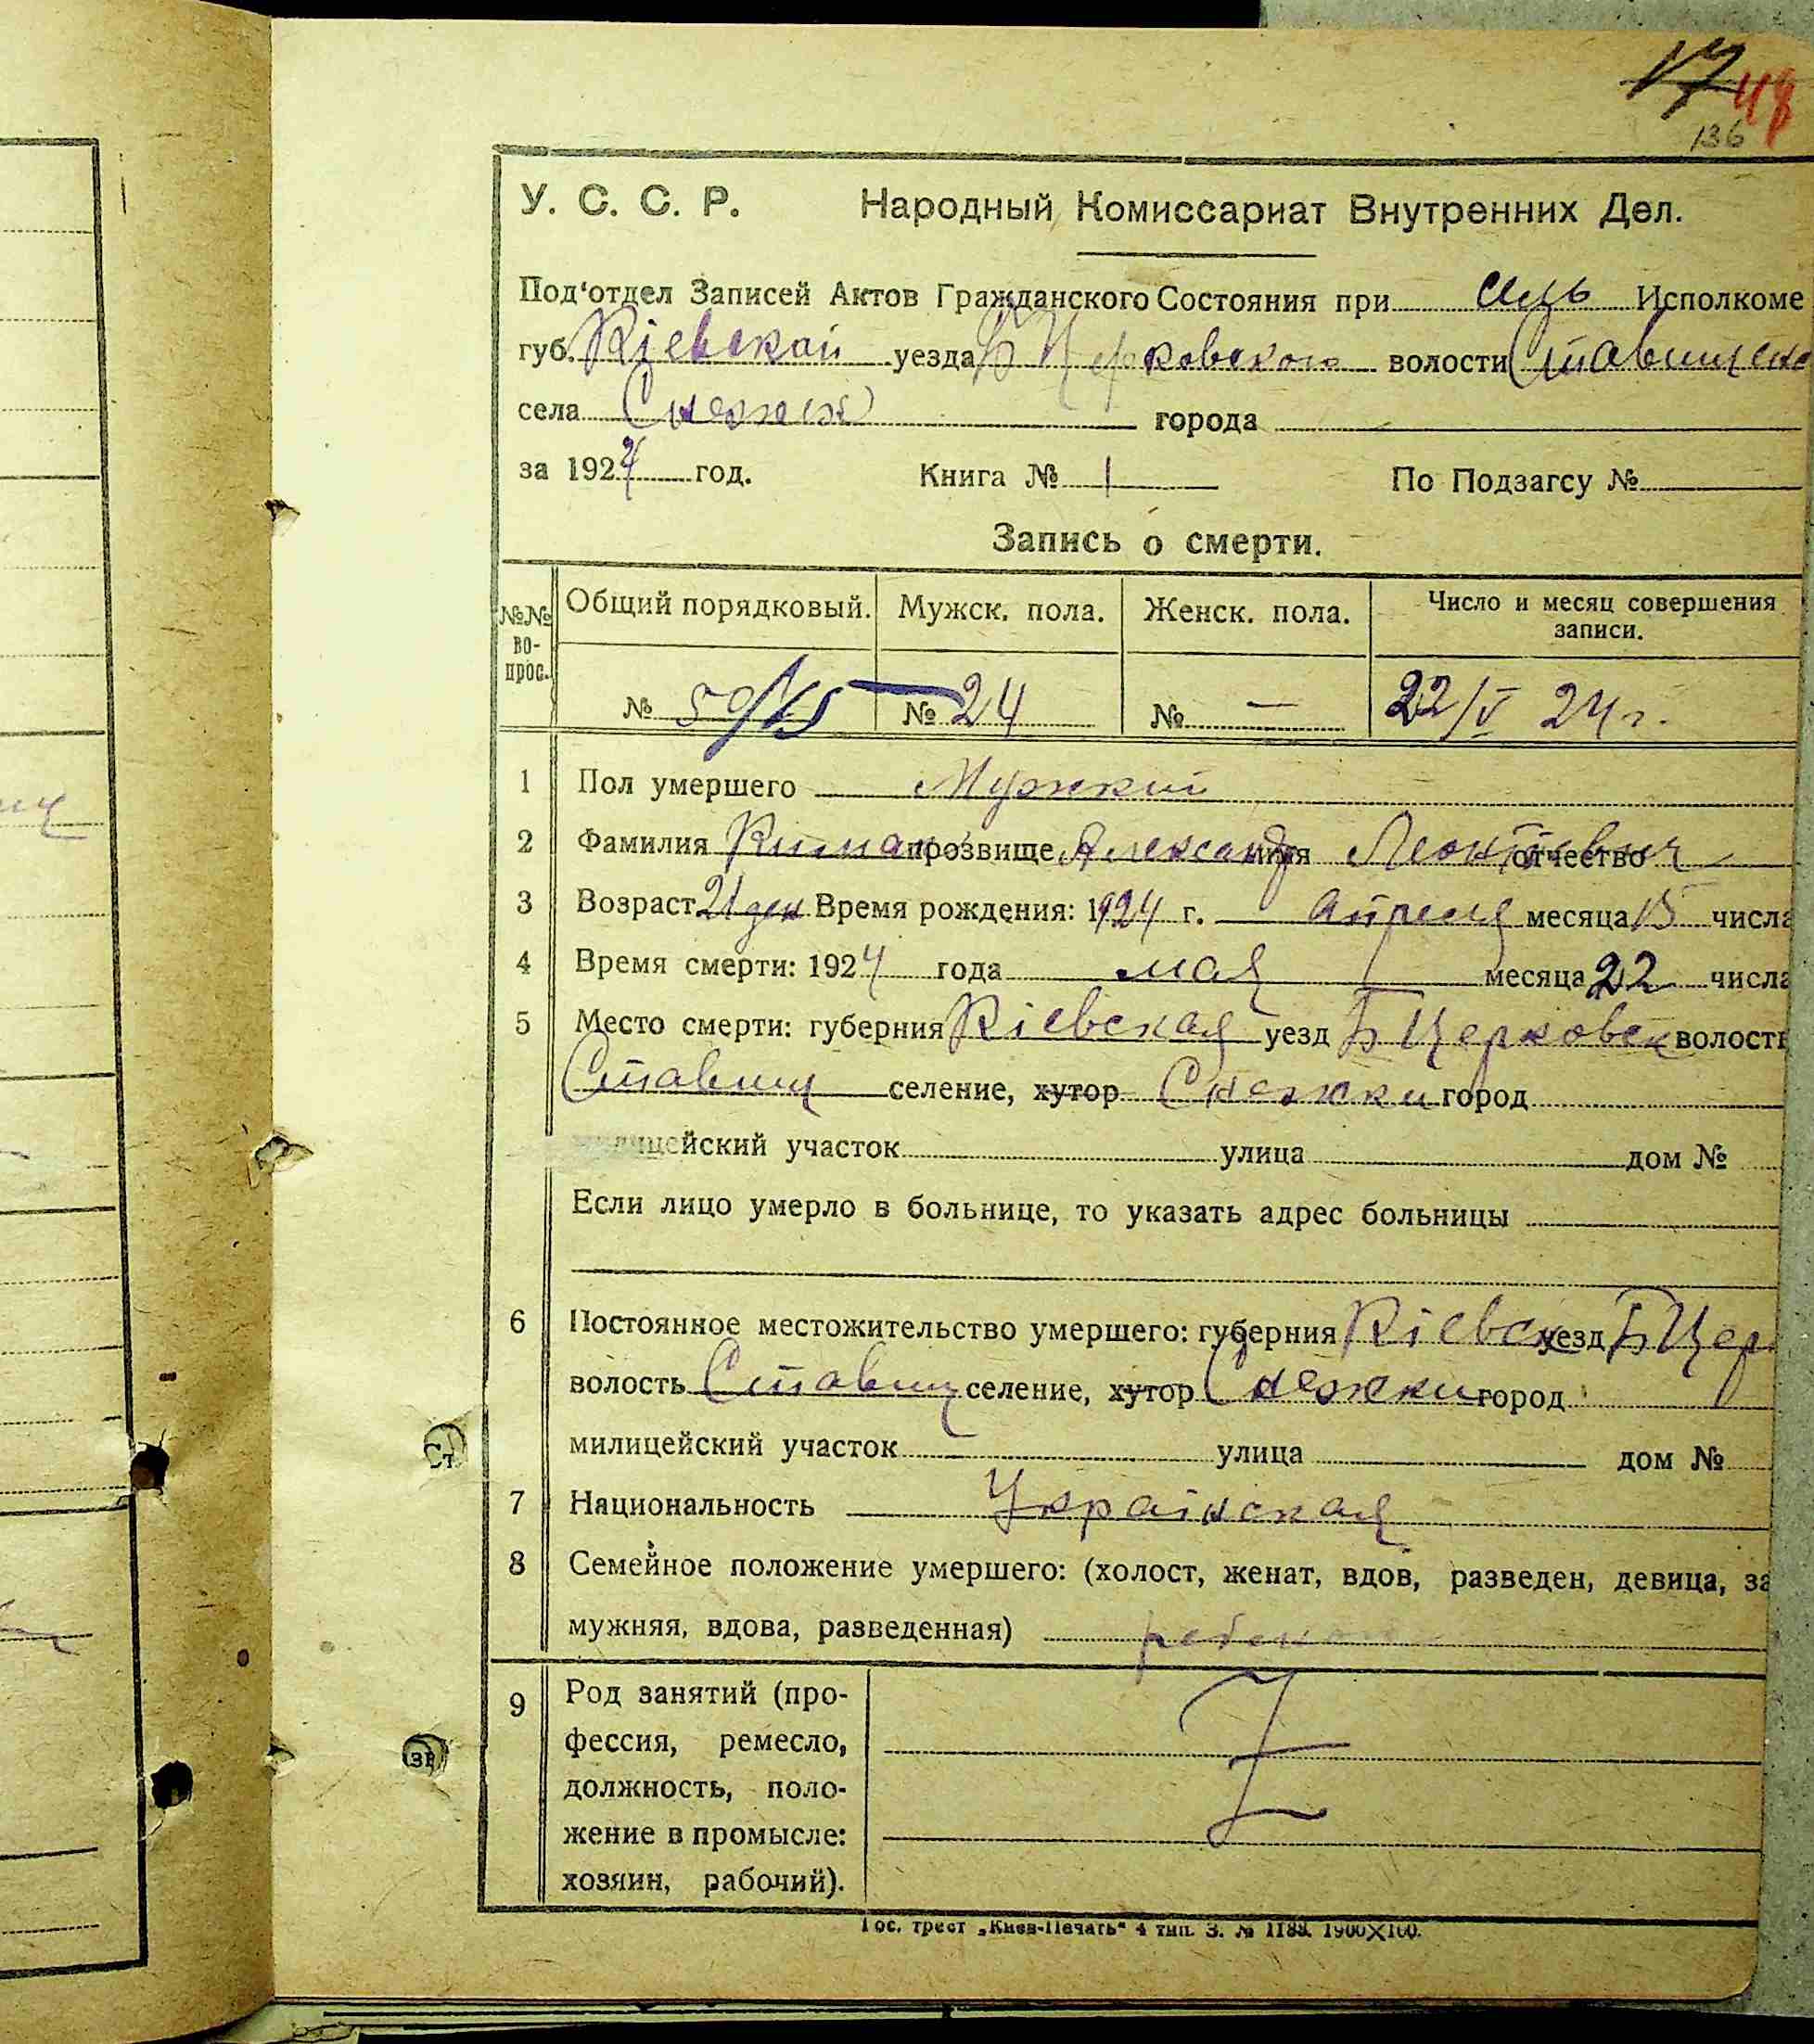 17 48
136
У. С. С. Р. Народный Комиссариат Внутренних Дел.
Под'отдел Записей Актов Гражданского Состояния при сель Исполкоме
губ. Кіевской уезда Б Церковского волости Ставищенс
села Снежек города
за 1924 год. Книга № 1 По Подзагсу №
Запись о смерти.
№№ во-прос. Общий порядковый. Мужск. пола. Женск. пола. Число и месяц совершения записи.
№ 50/45 № 24 № — 22/V 24 г.
1 Пол умершего Мужский
2 Фамилия прозвище Александр имя Леонтіевич отчество
3 Возраст 21 ден Время рождения: 1924 г. Апреля месяца 15 числа
4 Время смерти: 1924 года мая месяца 22 числа
5 Место смерти: губерния Кіевская уезд Б Церковск волость
Ставищ селение, хутор Снежки город
милицейский участок улица дом №
Если лицо умерло в больнице, то указать адрес больницы
6 Постоянное местожительство умершего: губерния Кіевск уезд Б Цер
волость Ставищ селение, хутор Снежки город
Ст.
милицейский участок улица дом №
7 Национальность Украінская
8 Семейное положение умершего: (холост, женат, вдов, разведен, девица, за
мужняя, вдова, разведенная) ребенок
9 Род занятий (про-
фессия, ремесло,
должность, поло-
жение в промысле:
хозяин, рабочий).
Гос. трест „Киев-Печать" 4 тип. З. № 1188. 1900×100.